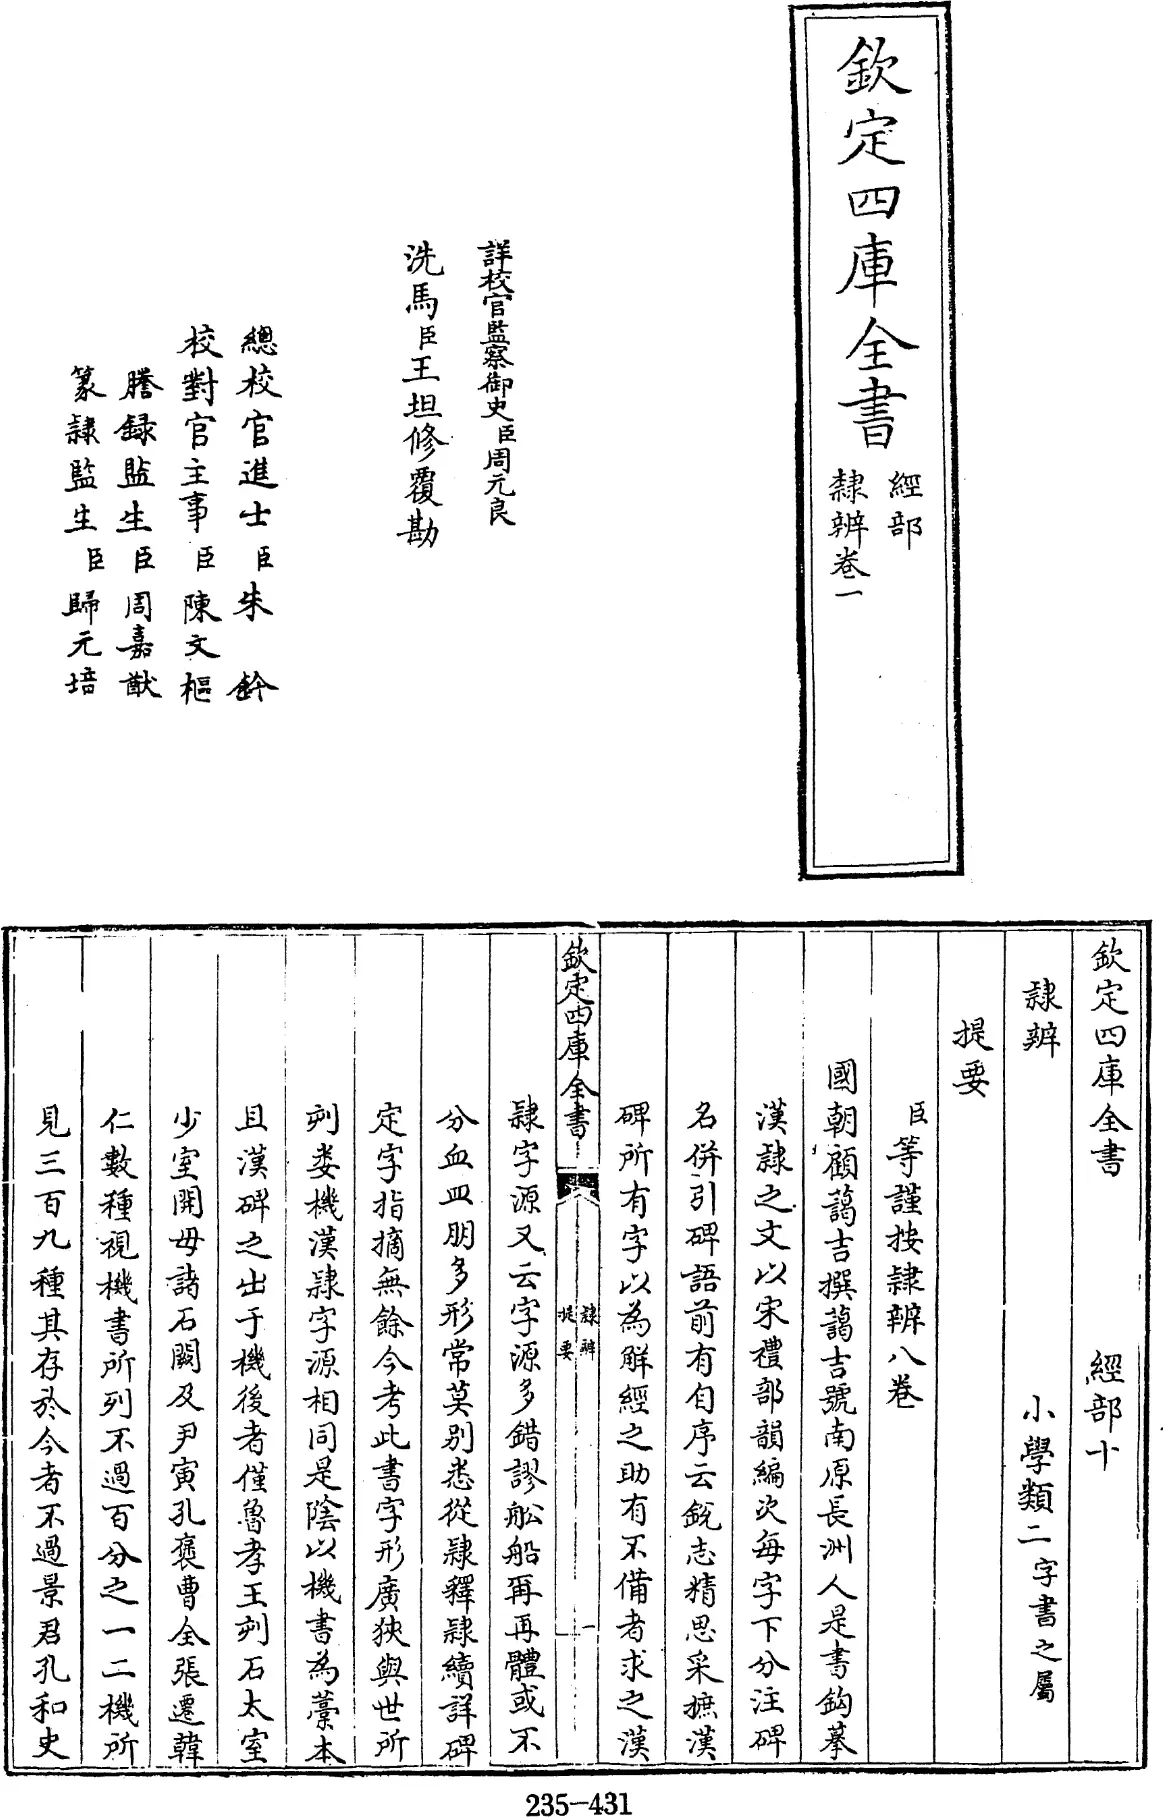 欽定四庫全書
經部
隸辨卷一
詳校官監察御史臣周元良
洗馬臣王坦修覆勘
總校官進士臣朱鈐
校對官主事臣陳文樞
謄録監生臣周嘉猷
篆隸監生臣歸元培
欽定四庫全書 經部十
隸辨 小學類二字書之屬
提要
臣等謹按隸辨八卷
國朝顧藹吉撰藹吉號南原長洲人是書鈎摹
漢隸之文以宋禮部韻編次每字下分注碑
名併引碑語前有自序云銳志精思采摭漢
碑所有字以為解經之助有不備者求之漢
欽定四庫全書
隸辨
提要
一
隸字源又云字源多錯謬舩船再再體或不
分血皿朋多形常莫别悉從隸釋隸續詳碑
定字指摘無餘今考此書字形廣狹與世所
刋婁機漢隸字源相同是陰以機書為藁本
且漢碑之出于機後者僅魯孝王刋石太室
少室開母諸石闕及尹寅孔褒曹全張遷韓
仁數種視機書所列不過百分之一二機所
見三百九種其存於今者不過景君孔和史
235-431